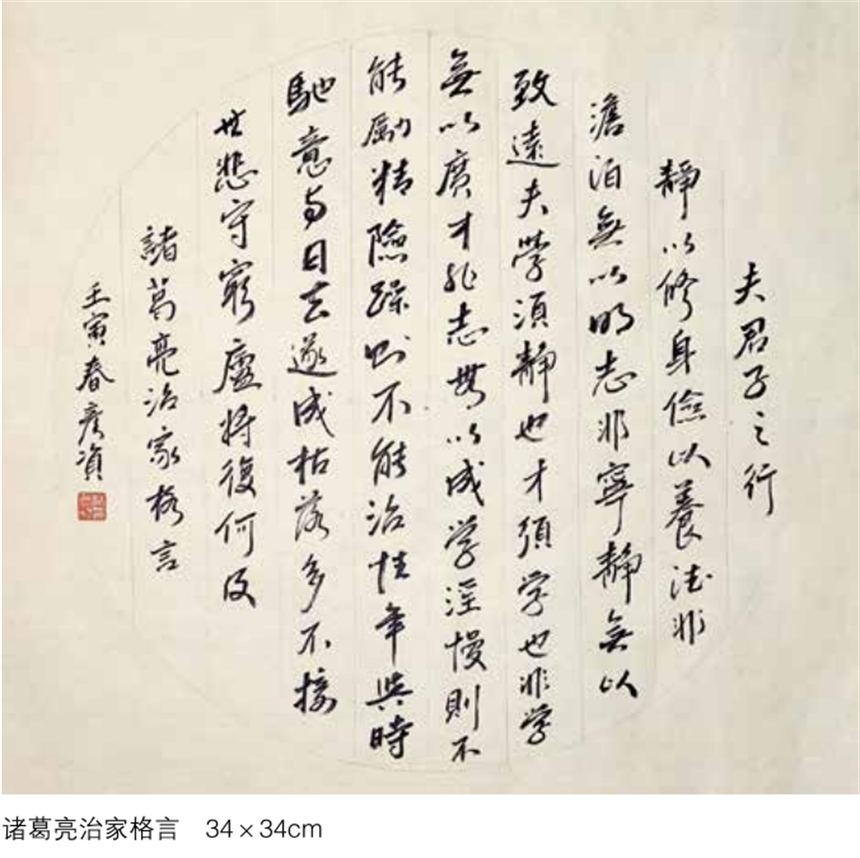 夫君子之行
靜以修身儉以養德非
澹泊無以明志非寧靜無以
致遠夫學須靜也才須学也非学
無以廣才非志無以成学淫慢則不
能勵精險躁则不能治性年與時
馳意与日去遂成枯落多不接
世悲守窮廬將復何及
諸葛亮治家格言
壬寅春彦
诸葛亮治家格言 34×34cm